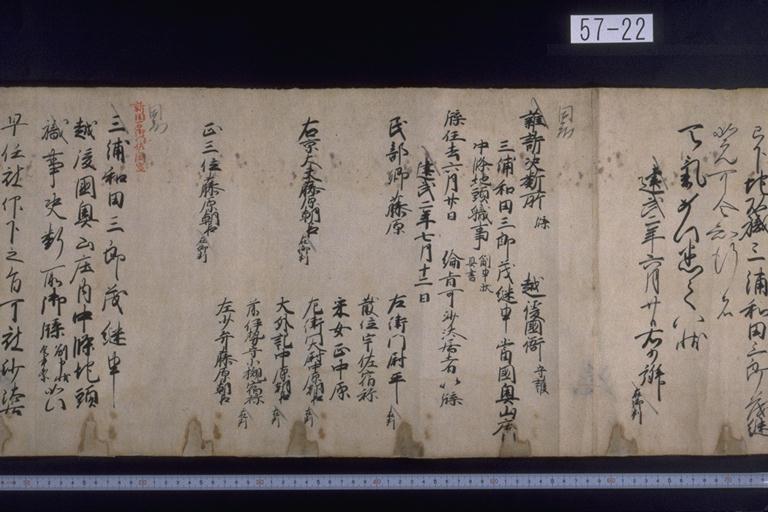 57-22
地頭職三浦和田三郎茂継
天氣如此悉之以状
建武二年六月廿日右少辨 在御判
同前
雜訴決斷所牒 越後國衙 守護
三浦和田三郎茂継申當國奥山庄
中條地頭職事 副申状具書
牒任去六月廿日 綸旨可沙汰居者以牒
建武二年七月十二日
民部卿藤原 左衛門尉平 在判
散位宇佐宿祢
采女正中原
右京大夫藤原朝臣 在判
左衛門大尉中原朝臣 在判
大外記中原朝臣 在判
前伊勢守小槻宿祢 在判
正三位藤原朝臣 在判
左少弁藤原朝臣
同前
三浦和田三郎茂継申
越後國奥山庄内中條地頭
職事決断所御牒 副申状具書 如此
早任被仰下之旨可被沙汰